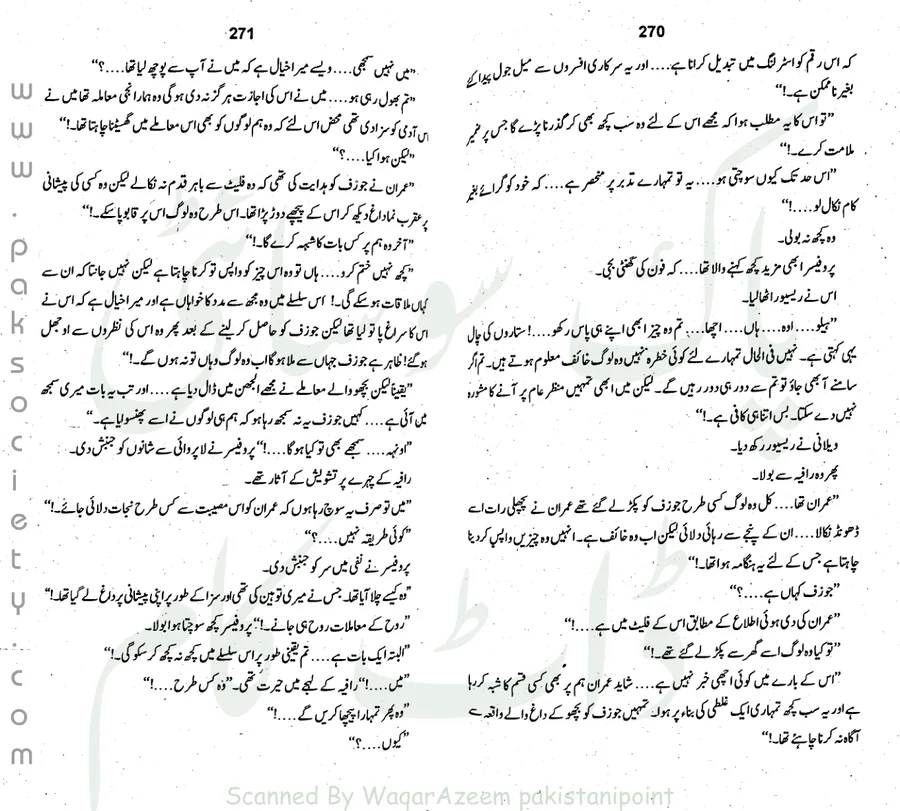 270
کہ اس رقم کو اسٹرلنگ میں تبدیل کرانا ہے.... اور یہ سرکاری افسروں سے میل جول پیدا کئے
بغیر ناممکن ہے۔!“
”تو اس کا یہ مطلب ہوا کہ مجھے اس کے لئے وہ سب کچھ بھی کر گذرنا پڑے گا جس پر ضمیر
ملامت کرے۔!“
”اس حد تک کیوں سوچتی ہو.... یہ تو تمہارے تدبر پر منحصر ہے.... کہ خود کو گرائے بغیر
کام نکال لو....!“
وہ کچھ نہ بولی۔
پروفیسر ابھی مزید کچھ کہنے والا تھا.... کہ فون کی گھنٹی بجی۔
اس نے ریسیور اٹھالیا۔
”ہیلو.... اوہ.... ہاں.... اچھا.... تم وہ چیز ابھی اپنے ہی پاس رکھو....! ستاروں کی چال
یہی کہتی ہے۔ نہیں فی الحال تمہارے لئے کوئی خطرہ نہیں وہ لوگ خائف معلوم ہوتے ہیں۔ تم اگر
سامنے آ بھی جاؤ تو تم سے دور ہی دور رہیں گے۔ لیکن میں ابھی تمہیں منظر عام پر آنے کا مشورہ
نہیں دے سکتا۔ بس اتنا ہی کافی ہے۔!“
ویلانی نے ریسیور رکھ دیا۔
پھر وہ رافیہ سے بولا۔
”عمران تھا.... کل وہ لوگ کسی طرح جوزف کو پکڑ لے گئے تھے عمران نے پچھلی رات اسے
ڈھونڈ نکالا.... ان کے پنجے سے رہائی دلائی لیکن اب وہ خائف ہے۔ انہیں وہ چیزیں واپس کر دینا
چاہتا ہے جس کے لئے یہ ہنگامہ ہوا تھا۔!“
”جوزف کہاں ہے....؟“
”عمران کی دی ہوئی اطلاع کے مطابق اس کے فلیٹ میں ہے....!“
”تو کیا وہ لوگ اسے گھر سے پکڑ لے گئے تھے۔!“
”اس کے بارے میں کوئی اچھی خبر نہیں ہے.... شاید عمران ہم پر بھی کسی قسم کا شبہ کر رہا
ہے اور یہ سب کچھ تمہاری ایک غلطی کی بناء پر ہوا۔ تمہیں جوزف کو بچھو کے داغ والے واقعہ سے
آگاہ نہ کرنا چاہئے تھا۔!“
271
”میں نہیں سمجھی.... ویسے میرا خیال ہے کہ میں نے آپ سے پوچھ لیا تھا....؟“
”تم بھول رہی ہو.... میں نے اس کی اجازت ہرگز نہ دی ہوگی وہ ہمارا نجی معاملہ تھا میں نے
اس آدمی کو سزا دی تھی محض اس لئے کہ وہ ہم لوگوں کو بھی اس معاملے میں گھسیٹنا چاہتا تھا۔!“
”لیکن ہوا کیا....؟“
”عمران نے جوزف کو ہدایت کی تھی کہ وہ فلیٹ سے باہر قدم نہ نکالے لیکن وہ کسی کی پیشانی
پر عقرب نما داغ دیکھ کر اس کے پیچھے دوڑ پڑا تھا۔ اس طرح وہ لوگ اس پر قابو پا سکے۔!“
”آخر وہ ہم پر کس بات کا شبہہ کرے گا۔!“
”کچھ نہیں ختم کرو.... ہاں تو وہ اس چیز کو واپس تو کرنا چاہتا ہے لیکن نہیں جانتا کہ ان سے
کہاں ملاقات ہو سکے گی۔! اس سلسلے میں وہ مجھ سے مدد کا خواہاں ہے اور میرا خیال ہے کہ اس نے
اس کا سراغ پا تو لیا تھا لیکن جوزف کو حاصل کر لینے کے بعد پھر وہ اس کی نظروں سے اوجھل
ہو گئے! ظاہر ہے جوزف جہاں سے ملا ہوگا اب وہ لوگ وہاں تو نہ ہوں گے۔!“
”یقیناً لیکن بچھو والے معاملے نے مجھے الجھن میں ڈال دیا ہے.... اور تب یہ بات میری سمجھ
میں آئی ہے.... کہیں جوزف یہ نہ سمجھ رہا ہو کہ ہم ہی لوگوں نے اسے پھنسوایا ہے۔“
”اونہہ.... سمجھے بھی تو کیا ہوگا....!“ پروفیسر نے لاپروائی سے شانوں کو جنبش دی۔
رافیہ کے چہرے پر تشویش کے آثار تھے۔
”میں تو صرف یہ سوچ رہا ہوں کہ عمران کو اس مصیبت سے کس طرح نجات دلائی جائے۔!“
”کوئی طریقہ نہیں....؟“
پروفیسر نے نفی میں سر کو جنبش دی۔
”وہ کیسے چلا آیا تھا۔ جس نے میری توہین کی تھی اور سزا کے طور پر اپنی پیشانی پر داغ لے گیا تھا۔!“
”روح کے معاملات روح ہی جانے۔!“ پروفیسر کچھ سوچتا ہوا بولا۔
”البتہ ایک بات ہے.... تم یقینی طور پر اس سلسلے میں کچھ نہ کچھ کر سکو گی۔!“
”میں....!“ رافیہ کے لہجے میں حیرت تھی۔ ”وہ کس طرح....!“
”وہ پھر تمہارا پیچھا کریں گے....!“
”کیوں....؟“
www.paksociety.com
پاک سوسائٹی
ڈاٹ کام
Scanned By WaqarAzeem pakistanipoint